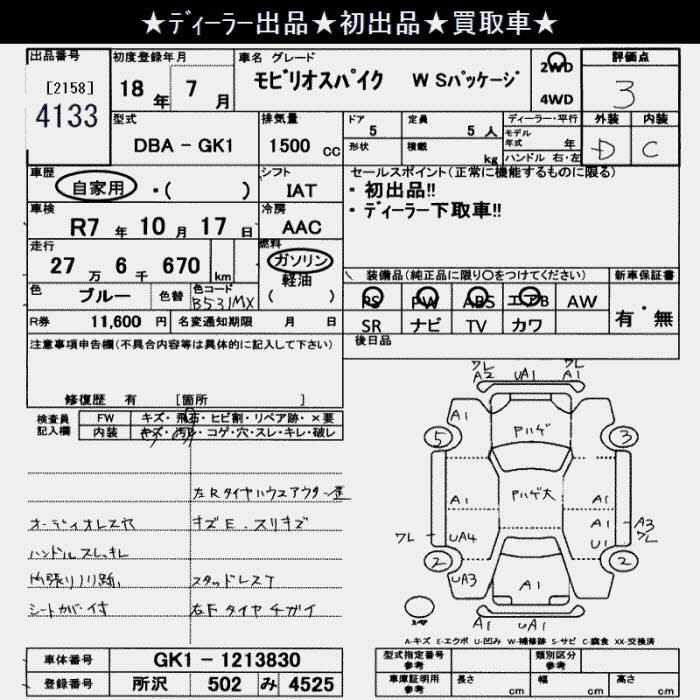 ★ディーラー出品★初出品★買取車★
出品番号 初度登録年月 車名 グレード 評価点
[2158] 4133 18年 7月 モビリオスパイク W Sパッケージ 2WD 4WD 3
型式 排気量 ドア 定員 ディーラー・平行 外装 内装
DBA - GK1 1500 cc 5 5人 モデル年式 年 D C
形状 積載 kg ハンドル 右・左
車歴 シフト セールスポイント(正常に機能するものに限る)
自家用 ・( ) IAT ・初出品!!
車検 冷房 ・ディーラー下取車!!
R7年 10月 17日 AAC
走行 燃料
27万 6千 670 km ガソリン 軽油 ( )
装備品(純正品に限り〇をつけてください) 新車保証書
色 ブルー 色替 色コード B531MX PS PW ABS エアB AW 有・無
R券 11,600円 名変通知期限 月 日 SR ナビ TV カワ
注意事項申告欄(不具合内容等は具体的に記入して下さい) 後日品
修復歴 有 [箇所 ]
検査員記入欄 FW キズ・飛石・ヒビ割・リペア跡・×要
内装 キズ・汚レ・コゲ・穴・スレ・キレ・破レ
左Rタイヤハウスアウター歪
オーディオレスヤ キズE・スリキズ
ハンドルスレ・キレ
内張り
スタッドレス
シートカバー付 右Fタイヤチガイ
ワレ A2 UA1 ワレ A1
A1 Pハゲ
5 3
Pハゲ大
A1 A1
A1 A3
ワレ UA4 U1 ワレ
2 2
UA3 A1
A1 UA1
A-キズ E-エクボ U-凹み W-補修跡 S-サビ C-腐食 XX-交換済
車体番号 GK1 - 1213830 型式指定番号 参考 類別区分 参考
登録番号 所沢 502 み 4525 車庫証明用 参考 長さ cm 幅 cm 高さ cm